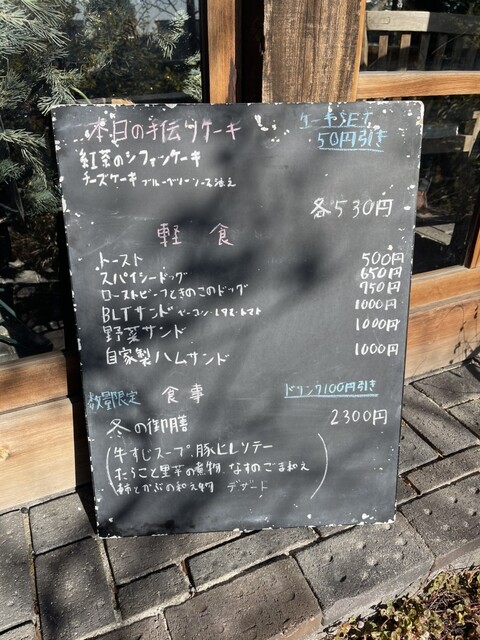 本日の手伝りケーキ ケーキSET
50円引き
紅茶のシフォンケーキ
チーズケーキ ブルーベリーソース添え
各530円
軽食
トースト 500円
スパイシードッグ 650円
ローストビーフときのこのドッグ 950円
BLTサンド ベーコン・レタス・トマト 1000円
野菜サンド 1000円
自家製ハムサンド 1000円
数量限定 食事 ドリンク100円引き
冬の御膳 2300円
(牛すじスープ、豚ヒレソテー
たらこと里芋の煮物、なすのごま和え
柿とかぶの和え物 デザート)